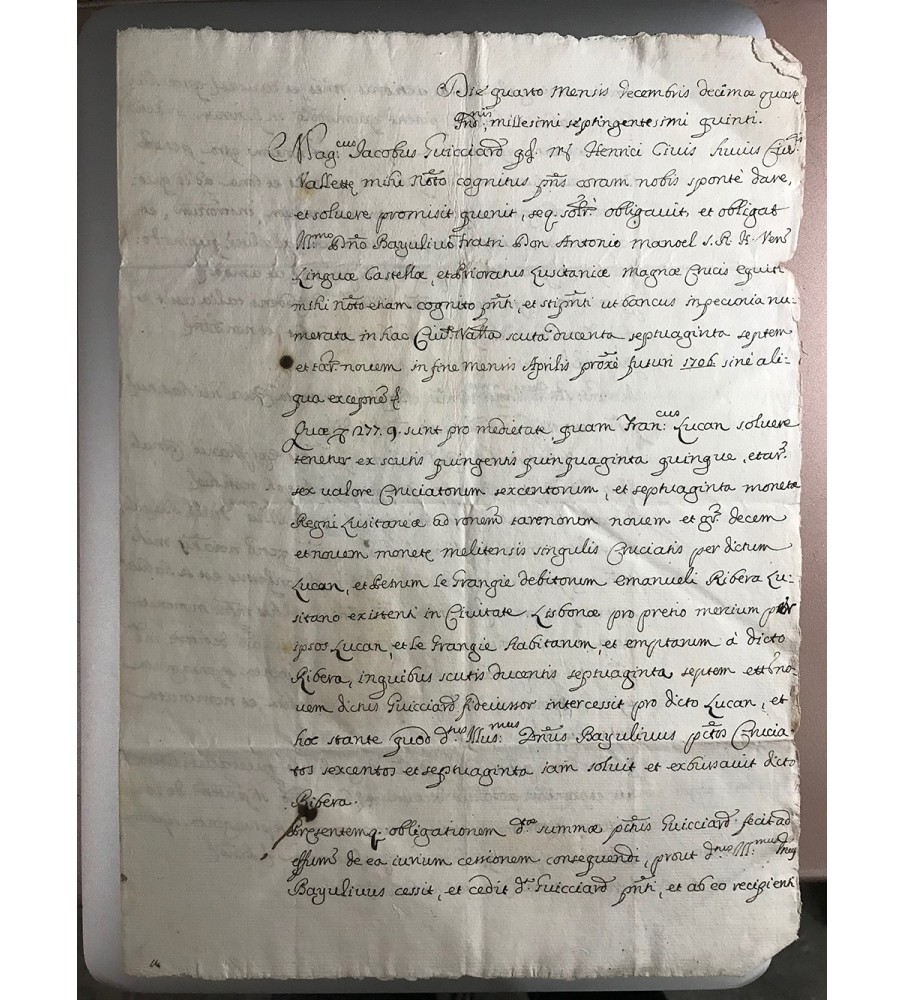 Die quarto mensis decembris decimæ quartæ
Ind.nis millesimi septingentesimi quinti.
Mag:cus Jacobus Guicciard q.d. m.ri Henrici Civis huius Civ.tis
Vallettę mihi Noto cognitus pñs coram nobis sponte dare,
et soluere promisit quenit, seq. solr. obligauit, et obligat
Ill.mo Dño Bayuliuo Fratri Don Antonio manoel S. R. H. Ven.
Linguæ Castellæ, et Prioratus Lusitaniæ magnæ Crucis equiti
mihi Noto etiam cognito pñti, et stipñti ut bancus in pecunia nu:
merata in hac Ciu.te Valla scuta ducenta septuaginta septem
et tar. nouem in fine mensis Aprilis proxe futuri 1706 sine ali:
qua excepne
Quæ 277.9. sunt pro medietate quam Fran:cus Lucan soluere
tenetur ex scutis quingentis quinquaginta quinque, et ar.
sex ualore Cruciatorum sexcentorum, et septuaginta monetæ
Regni Lusitaneæ ad ronem tarenorum nouem et gr. decem
et nouem monetę melitensis singulis Cruciatis per dictum
Lucan, et Petrum le Grangie debitorum emanueli Ribera Lu:
sitano existenti in Ciuitate Lisbonæ pro pretio mercium per
ipsos Lucan, et le Grangie habitarum, et emptarum à dicto
Ribera, in quibus scutis ducentis septuaginta septem et t. no:
uem dictus Guicciard fideiussor intercessit pro dicto Lucan, et
hoc stante quod d.tus Illus:mus Dñus Bayuliuus pctos Crucia
tos sexcentos et septuaginta iam soluit et exbursauit dicto
Ribera.
Presentemq. obligationem d.tæ summæ pctus Guicciard fecit ad
effum de ea iurium cessionem consequendi, prout d.tus Ill:mus Dñus
Bayuliuus cessit, et cedit d.to Guicciard pñti, et ab eo recipienti